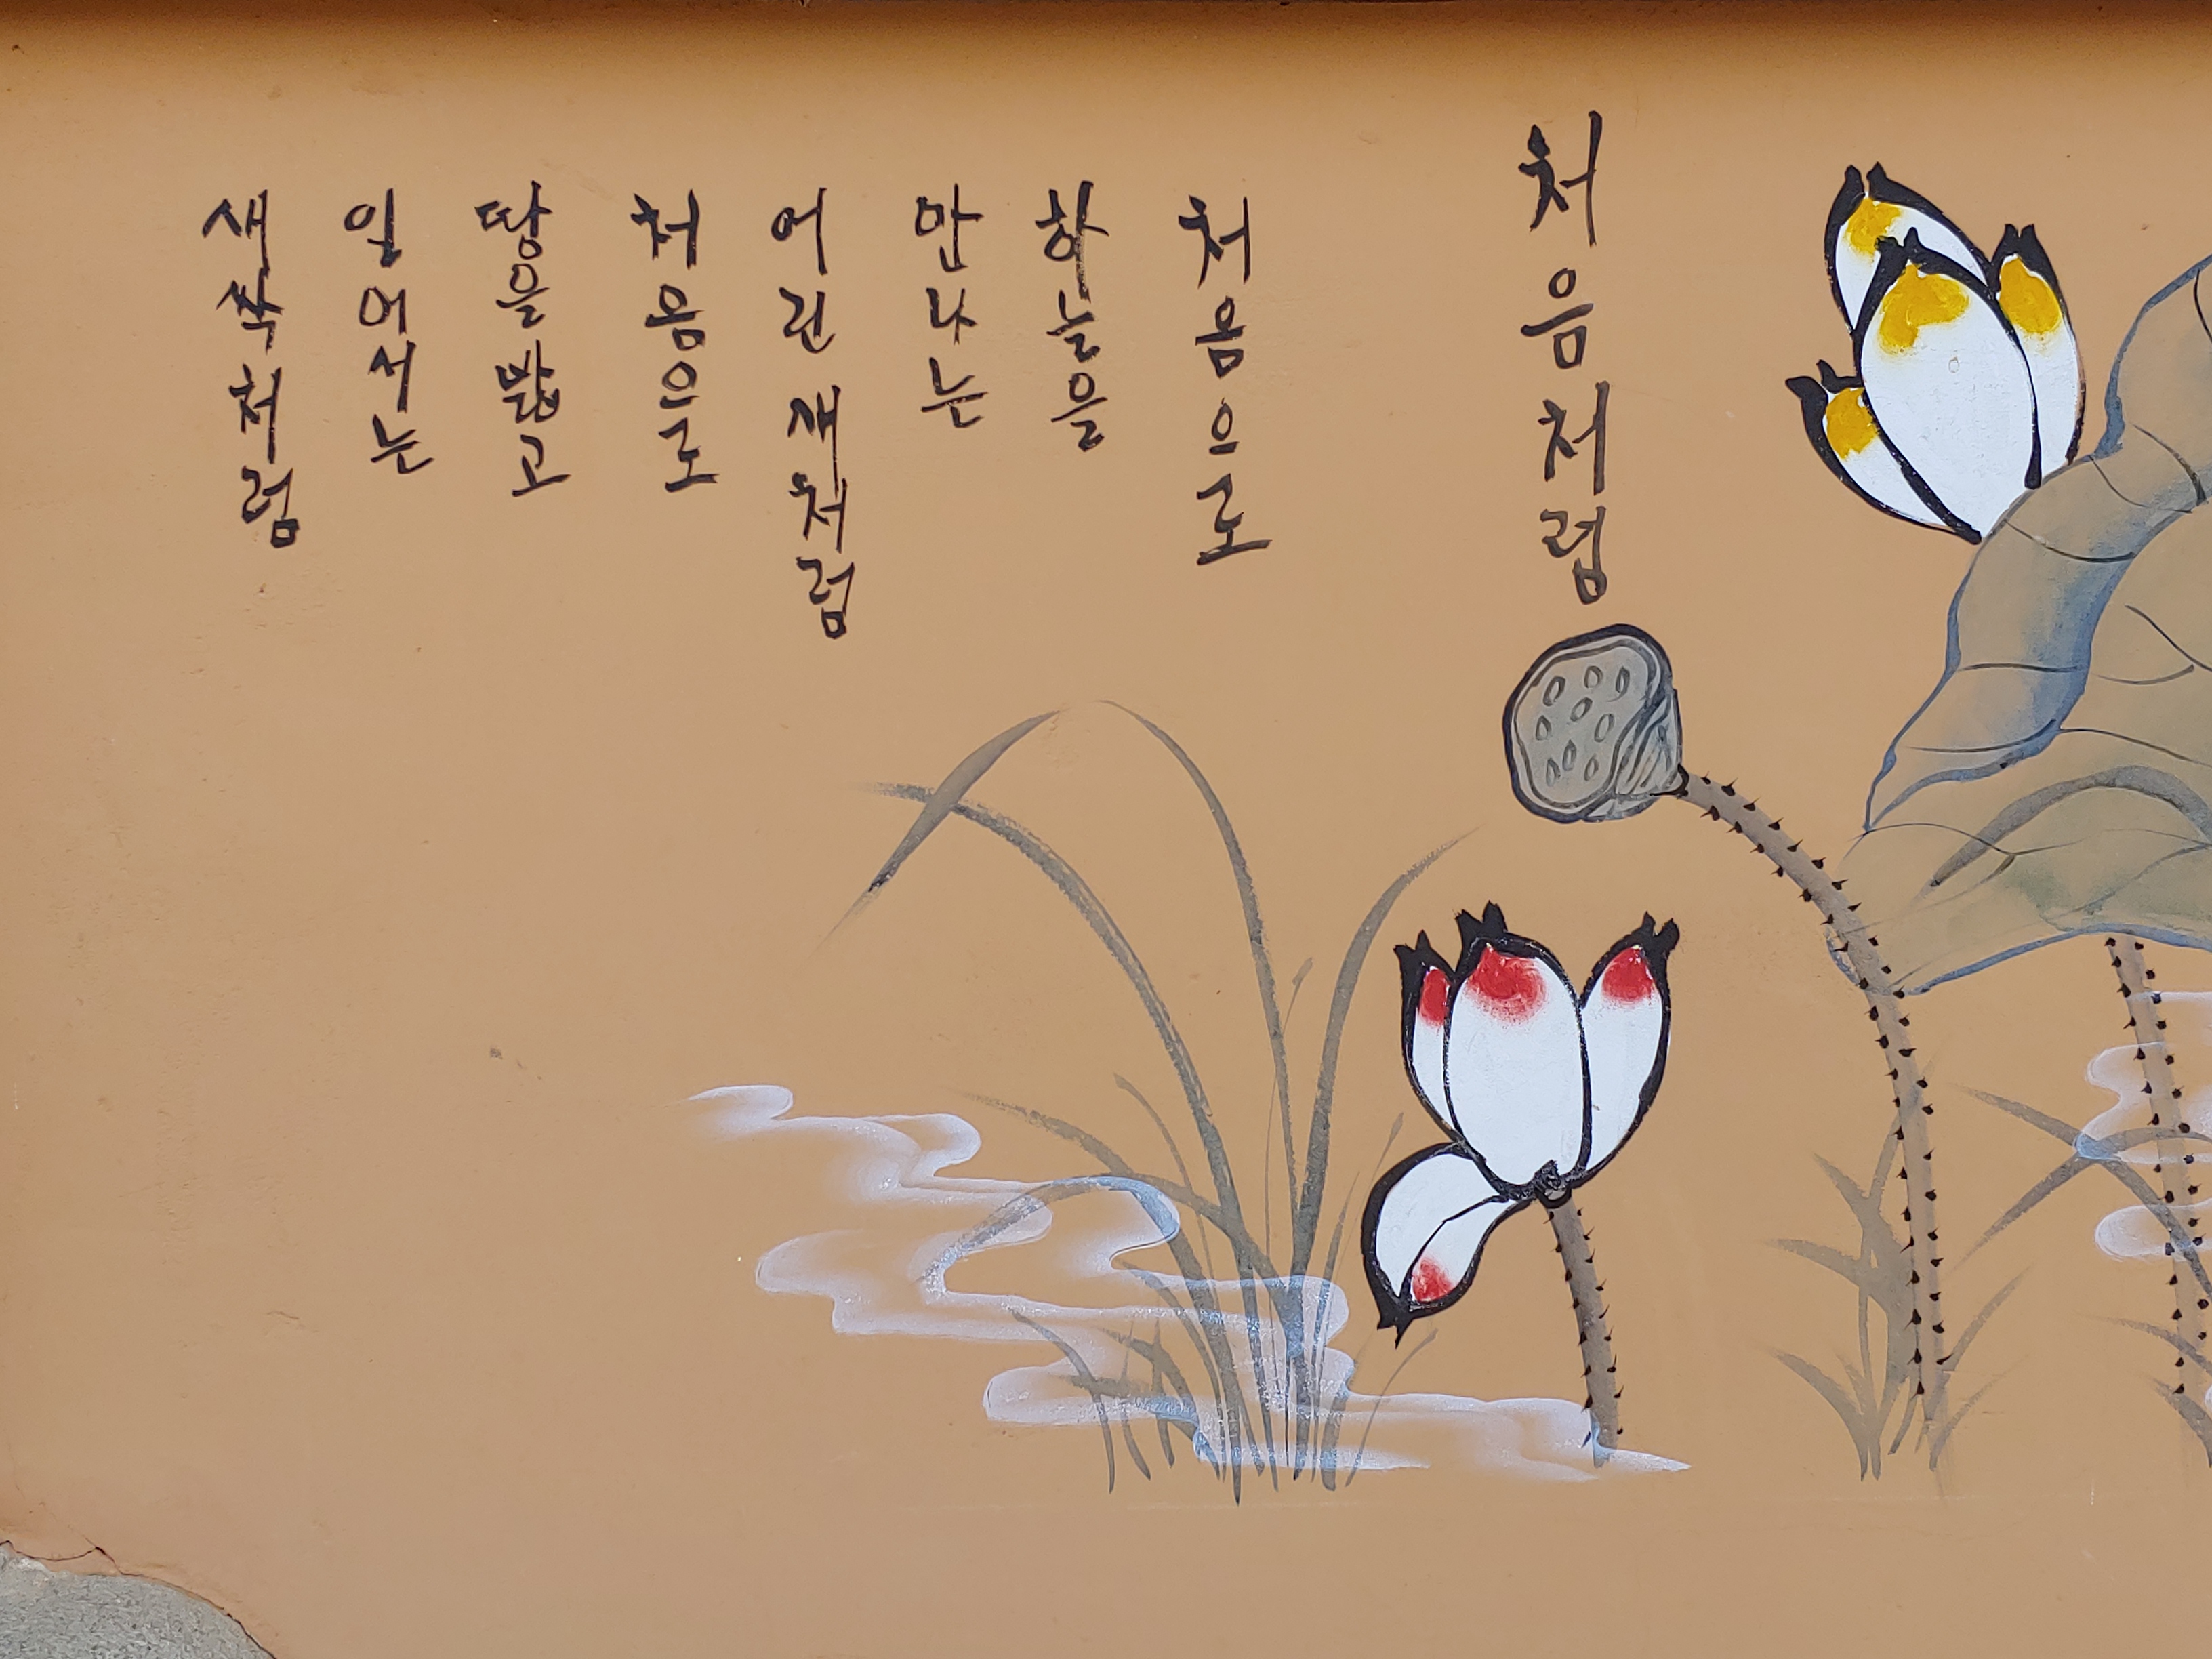 처음처럼
처음으로
하늘을
만나는
어린 새처럼
처음으로
땅을 밟고
일어서는
새싹처럼